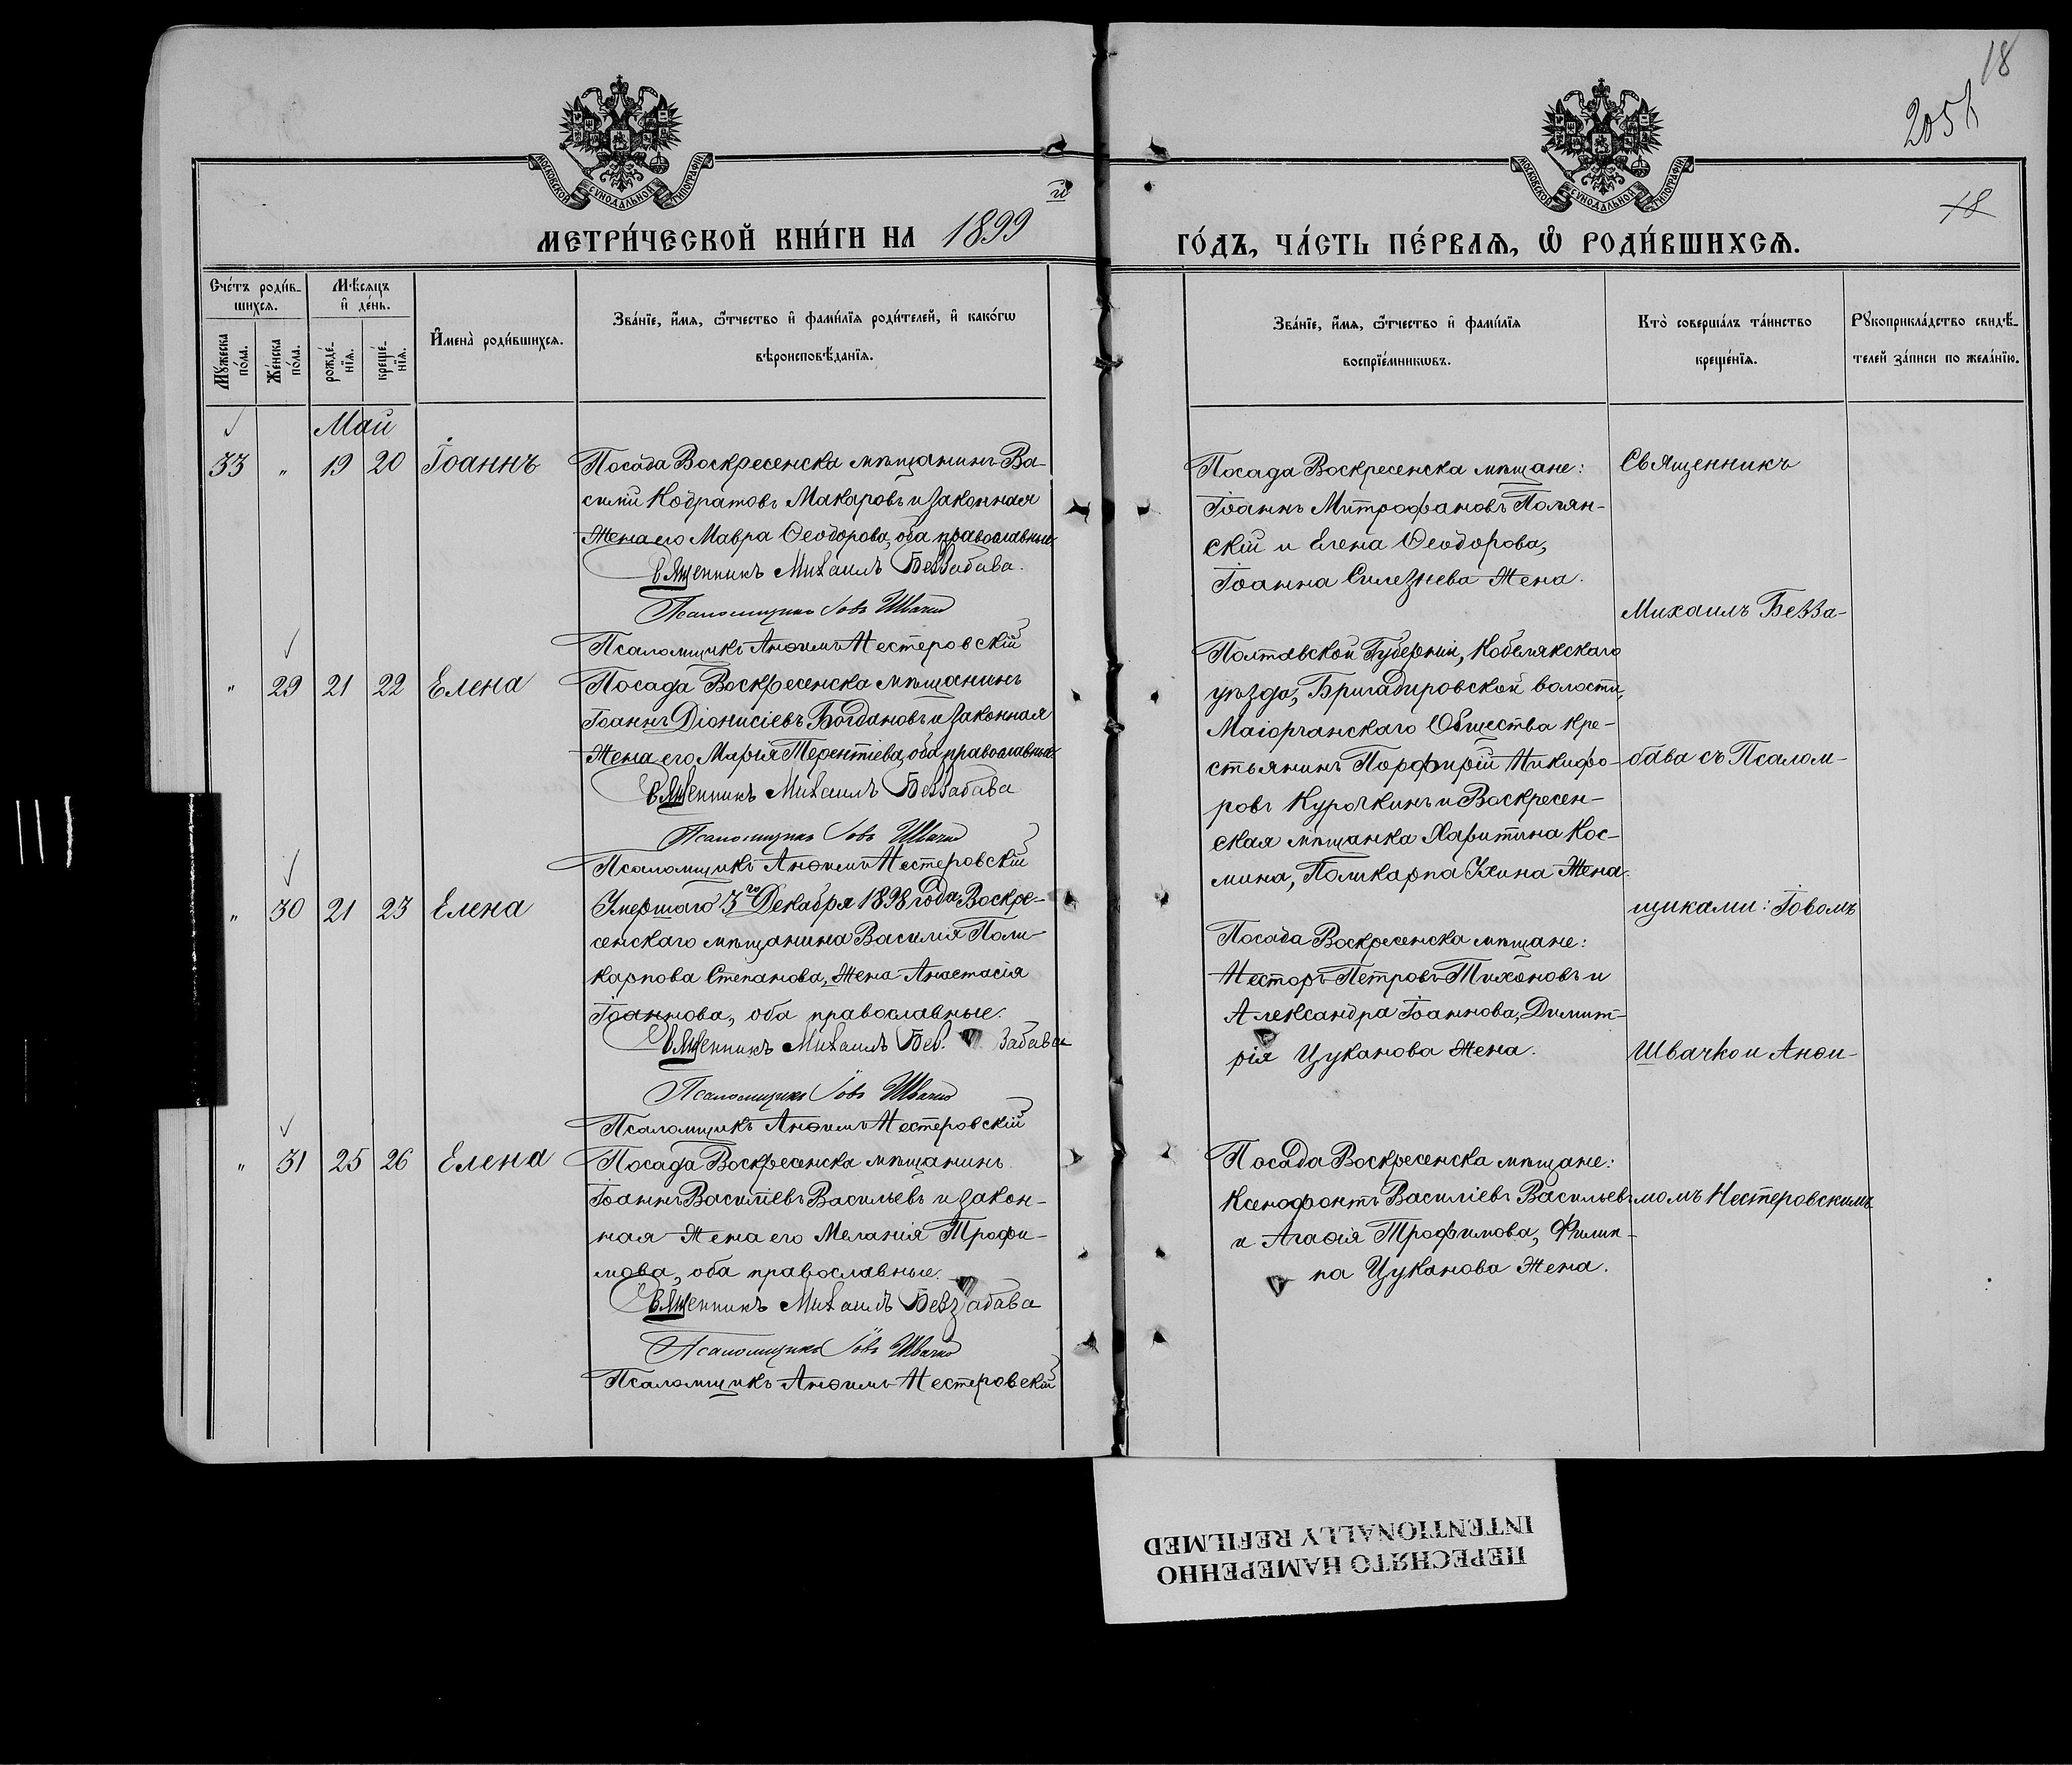 18
205
18
МОСКОВСКОЙ СѴНОДАЛЬНОЙ ТИПОГРАФІИ
МОСКОВСКОЙ СѴНОДАЛЬНОЙ ТИПОГРАФІИ
МЕТРИ́ЧЕСКОЙ КНИ́ГИ НА 1899 й
ГО́ДЪ, ЧА́СТЬ ПЕ́РВАѦ, Ѡ҆ РОДИ́ВШИХСѦ.
Сче́тъ роди́в-
шихсѧ.
Мѣ́сяцъ
и҆ де́нь.
Мꙋ́жеска по́ла.
Же́нска по́ла.
рожде́-нїѧ.
креще́-нїѧ.
И҆мена̀ роди́вшихсѧ.
Зва́нїе, и҆́мѧ, ѻ҆́тчество и҆ фами́лїѧ роди́телей, и҆ како́гѡ
вѣроисповѣ́данїѧ.
Зва́нїе, и҆́мѧ, ѻ҆́тчество и҆ фами́лїѧ
воспрїе́мникѡвъ.
Кто̀ соверша́лъ та́инство
креще́нїѧ.
Рꙋкоприкла́дство свидѣ́-
телей за́писи по жела́нїю.
Май
33 " 19 20 Іоаннъ
Посада Воскресенска мѣщанинъ Ва-
силій Кодратовъ Макаровъ и законная
жена его Мавра Ѳеодорова, оба православные
Священникъ Михаилъ Беззабава.
Псаломщикъ Іовъ Швачко
Псаломщикъ Анѳимъ Нестеровскій
Посада Воскресенска мѣщане:
Іоаннъ Митрофановъ Полян-
скій и Елена Ѳеодорова,
Іоанна Силезнева жена.
" 29 21 22 Елена
Посада Воскресенска мѣщанинъ
Іоаннъ Діонисіевъ Богдановъ и законная
жена его Марія Терентіева, оба православные
Священникъ Михаилъ Беззабава
Псаломщикъ Іовъ Швачко
Псаломщикъ Анѳимъ Нестеровскій
Полтавской Губерніи, Кобелякскаго
уѣзда, Бригадировской волости,
Маіорчанскаго Общества кре-
стьянинъ Порфирій Никифо-
ровъ Курочкинъ и Воскресен-
ская мѣщанка Харитина Кос-
мина, Поликарпа жена.
" 30 21 23 Елена
Умершаго 3го Декабря 1898 года Воскре-
сенскаго мѣщанина Василія Поли-
карпова Степанова, жена Анастасія
Іоаннова, оба православные.
Священникъ Михаилъ Без. забава
Псаломщикъ Іовъ Швачко
Псаломщикъ Анѳимъ Нестеровскій
Посада Воскресенска мѣщане:
Несторъ Петровъ Тихоновъ и
Александра Іоаннова, Димит-
рія Цуканова жена.
" 31 25 26 Елена
Посада Воскресенска мѣщанинъ
Іоаннъ Василіевъ Васильевъ и закон-
ная жена его Меланія Трофи-
мова, оба православные.
Священникъ Михаилъ Беззабава
Псаломщикъ Іовъ Швачко
Псаломщикъ Анѳимъ Нестеровскій
Посада Воскресенска мѣщане:
Ксенофонтъ Василіевъ Васильевъ
и Агаѳія Трофимова, Филип-
па Цуканова жена.
Священникъ
Михаилъ Безза-
бава съ Псалом-
щиками: Іовомъ
Швачко и Анѳи-
момъ Нестеровскимъ
ПЕРЕСНЯТО НАМЕРЕННО
INTENTIONALLY REFILMED